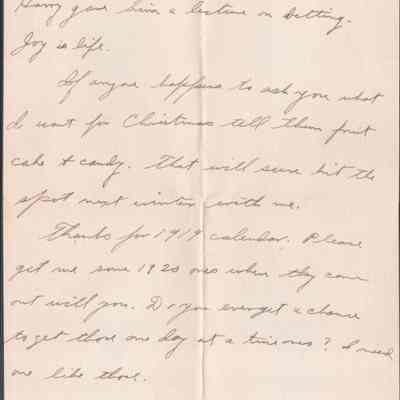 Harry gave him a lecture on betting.
Joy is life.
If anyone happens to ask you what
I want for Christmas tell them fruit
cake & candy. That will sure hit the
spot next winter with me.
Thanks for 1919 calendar. Please
get me some 1920 ones when they come
out will you. Do you ever get a chance
to get those one day at a time ones? I need
one like those.